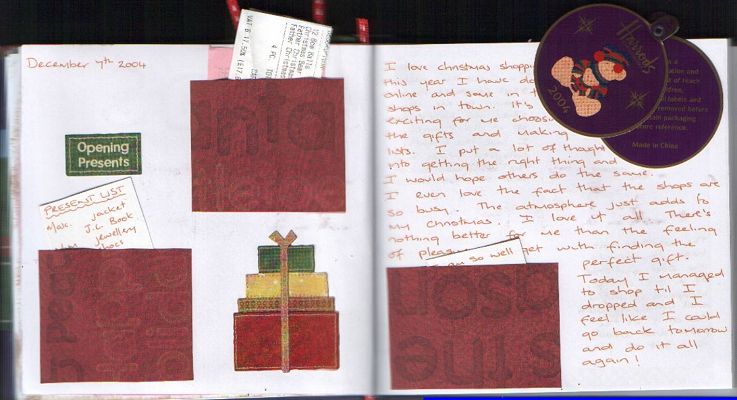 December 7th 2004
VAT @ 17.50%
Opening
Presents
PRESENT LIST
Max. jacket
J.C. Book
jewellery
I love christmas shopp
this year I have do
online and some in t
shops in town. It's
exciting for me choosin
the gifts and making
lists. I put a lot of thought
into getting the right thing and
I would hope others do the same.
I even love the fact that the shops are
so busy. The atmosphere just adds to
my Christmas. I love it all. There's
nothing better for me than the feeling
of pleas get with finding the
so well
perfect gift.
Today I managed
to shop til I
dropped and I
feel like I could
go back tomorrow
and do it all
again!
Harrods
2004
of reach
labels and
removed before
packaging
reference.
Made in China